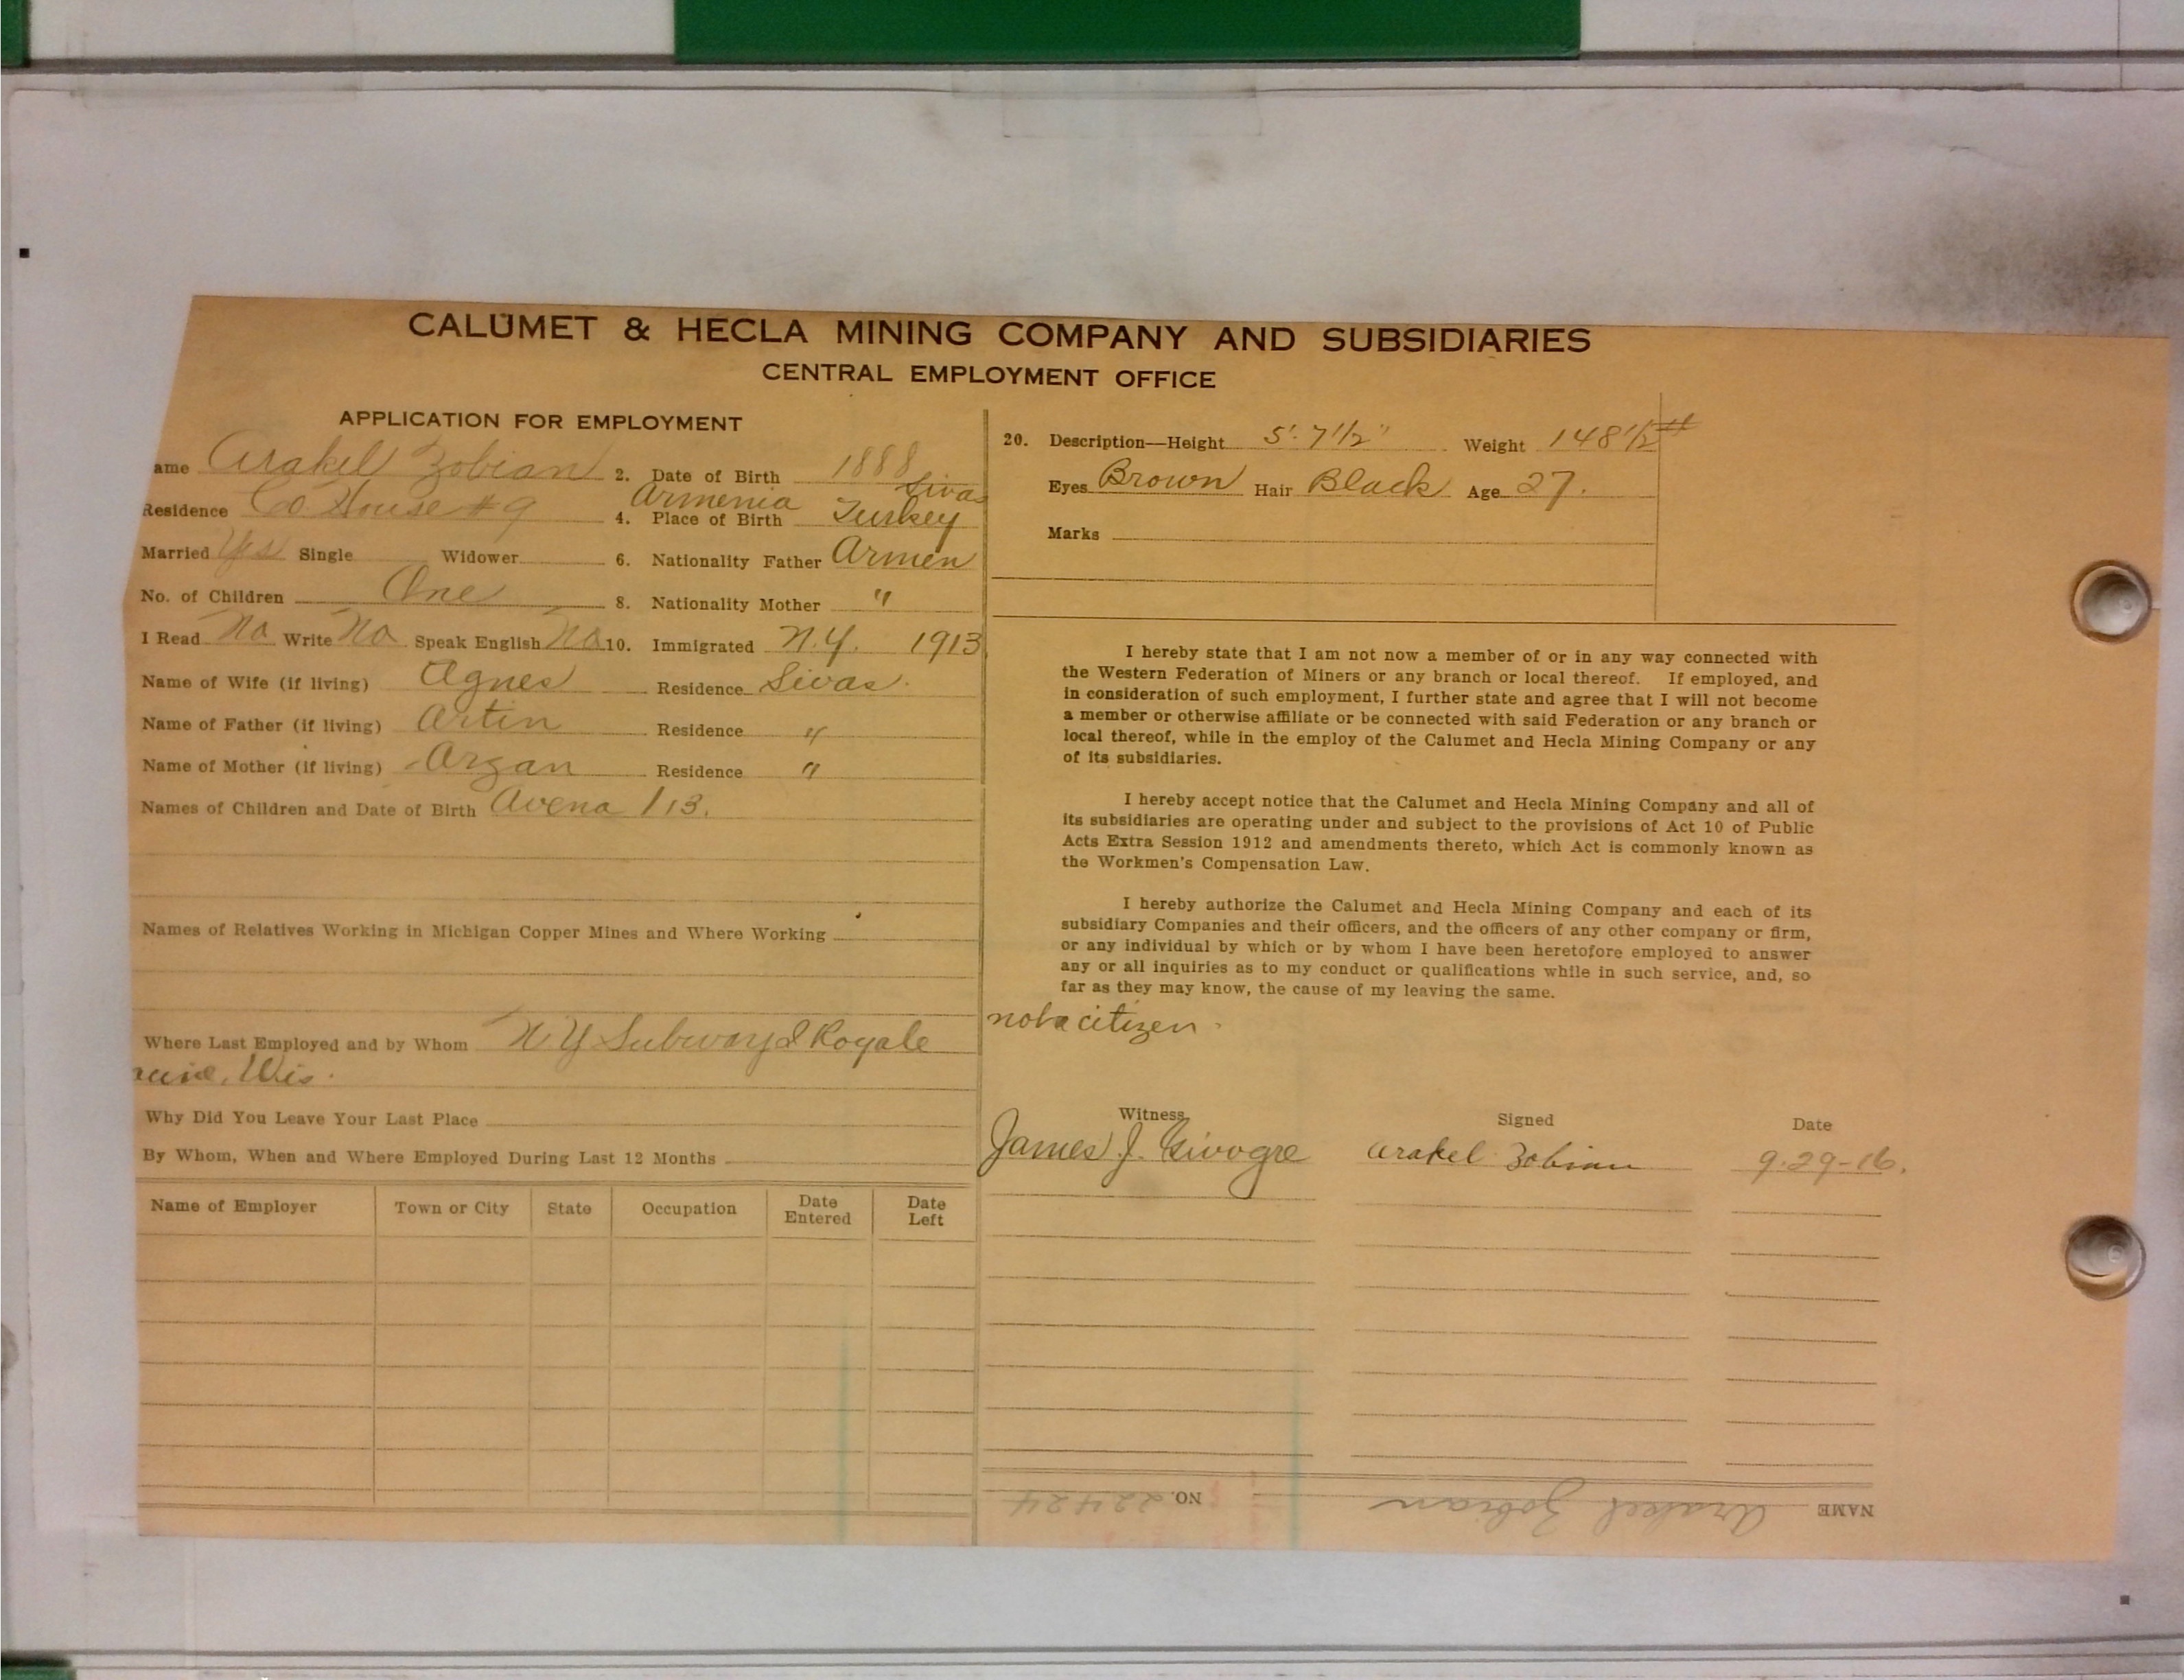 CALUMET & HECLA MINING COMPANY AND SUBSIDIARIES
CENTRAL EMPLOYMENT OFFICE
APPLICATION FOR EMPLOYMENT
ame Arakel Zobian 2. Date of Birth 1888
Residence Co House #9 4. Place of Birth Armenia Sivas Turkey
Married Yes Single Widower 6. Nationality Father Armen
No. of Children One 8. Nationality Mother "
I Read No Write No Speak English No 10. Immigrated N.Y. 1913
Name of Wife (if living) Agnes Residence Sivas.
Name of Father (if living) Artin Residence "
Name of Mother (if living) Argan Residence "
Names of Children and Date of Birth Avena 1 13.
Names of Relatives Working in Michigan Copper Mines and Where Working
Where Last Employed and by Whom N.Y Subway & Royale
Wis.
Why Did You Leave Your Last Place
By Whom, When and Where Employed During Last 12 Months
Name of Employer Town or City State Occupation Date Entered Date Left
20. Description—Height 5'. 7 1/2" Weight 148 1/2 #
Eyes Brown Hair Black Age 27.
Marks
I hereby state that I am not now a member of or in any way connected with
the Western Federation of Miners or any branch or local thereof. If employed, and
in consideration of such employment, I further state and agree that I will not become
a member or otherwise affiliate or be connected with said Federation or any branch or
local thereof, while in the employ of the Calumet and Hecla Mining Company or any
of its subsidiaries.
I hereby accept notice that the Calumet and Hecla Mining Company and all of
its subsidiaries are operating under and subject to the provisions of Act 10 of Public
Acts Extra Session 1912 and amendments thereto, which Act is commonly known as
the Workmen's Compensation Law.
I hereby authorize the Calumet and Hecla Mining Company and each of its
subsidiary Companies and their officers, and the officers of any other company or firm,
or any individual by which or by whom I have been heretofore employed to answer
any or all inquiries as to my conduct or qualifications while in such service, and, so
far as they may know, the cause of my leaving the same.
not a citizen.
Witness Signed Date
James J. Arakel Zobian 9-29-16.
NAME Arakel Zobian NO. 22424